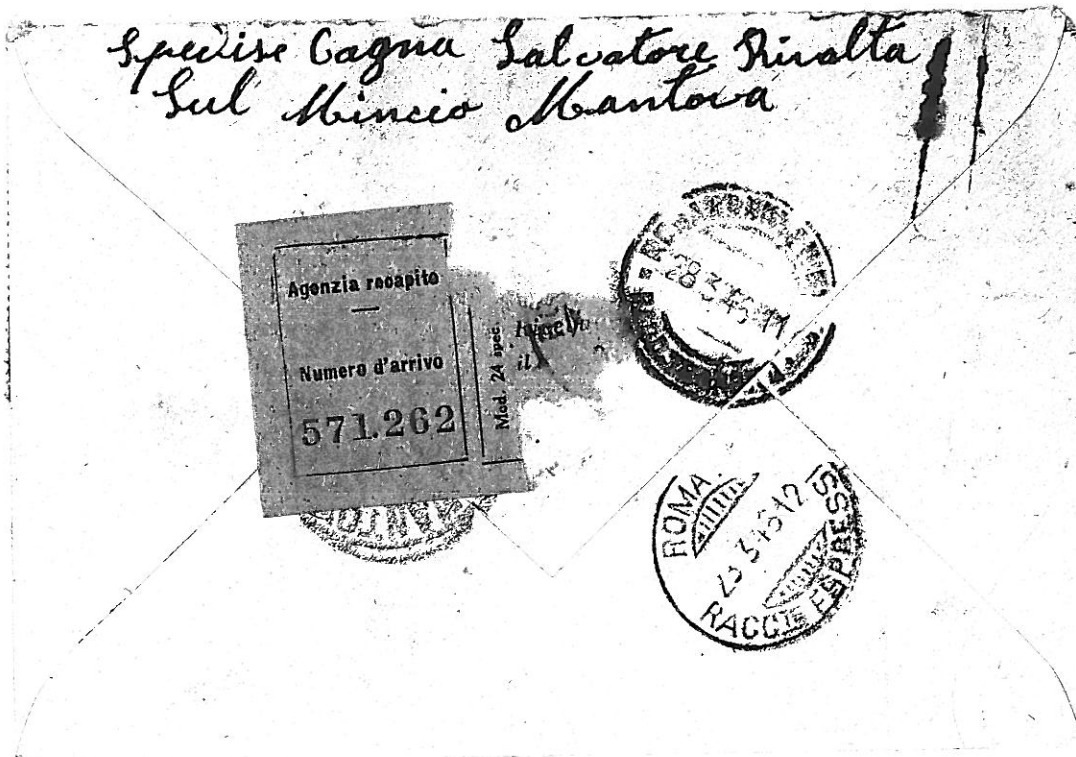 Spedise Cagna Salvatore Rivalta
Sul Mincio Mantova
Agenzia recapito
Numero d'arrivo
571.262
Mod. 24 spec.
il
28 3 46 11
ROMA
RACCTE ESPRESS